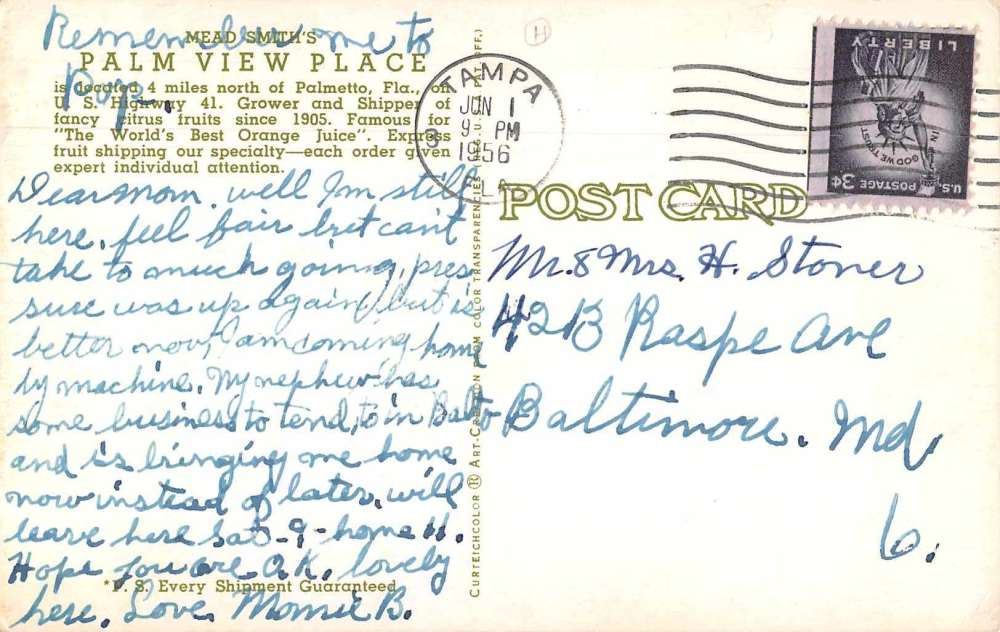 Remember me to
Pop.
MEAD SMITH'S
PALM VIEW PLACE
is located 4 miles north of Palmetto, Fla., on
U. S. Highway 41. Grower and Shipper of
fancy citrus fruits since 1905. Famous for
"The World's Best Orange Juice". Express
fruit shipping our specialty—each order given
expert individual attention.
Dear Mom. well Im still
here. feel fair but can't
take to much going, pres
sure was up again, but is
better now, I am coming home
by machine. My nephew has
some business to tend, to in Balto
and is bringing me home
now instead of later. will
leave here Sat-9-home 11.
Hope you are O.K. lovely
here. Love Momie B.
*P. S. Every Shipment Guaranteed
CURTEICHCOLOR ® ART-CREATION FROM COLOR TRANSPARENCIES REG. U.S. PAT. OFF.)
H
TAMPA
JUN 1
9 PM
1956
3
LIBERTY
IN GOD WE TRUST
U.S. POSTAGE 3¢
POST CARD
Mr. & Mrs. H. Stoner
4213 Raspe Ave
Baltimore. Md,
6.